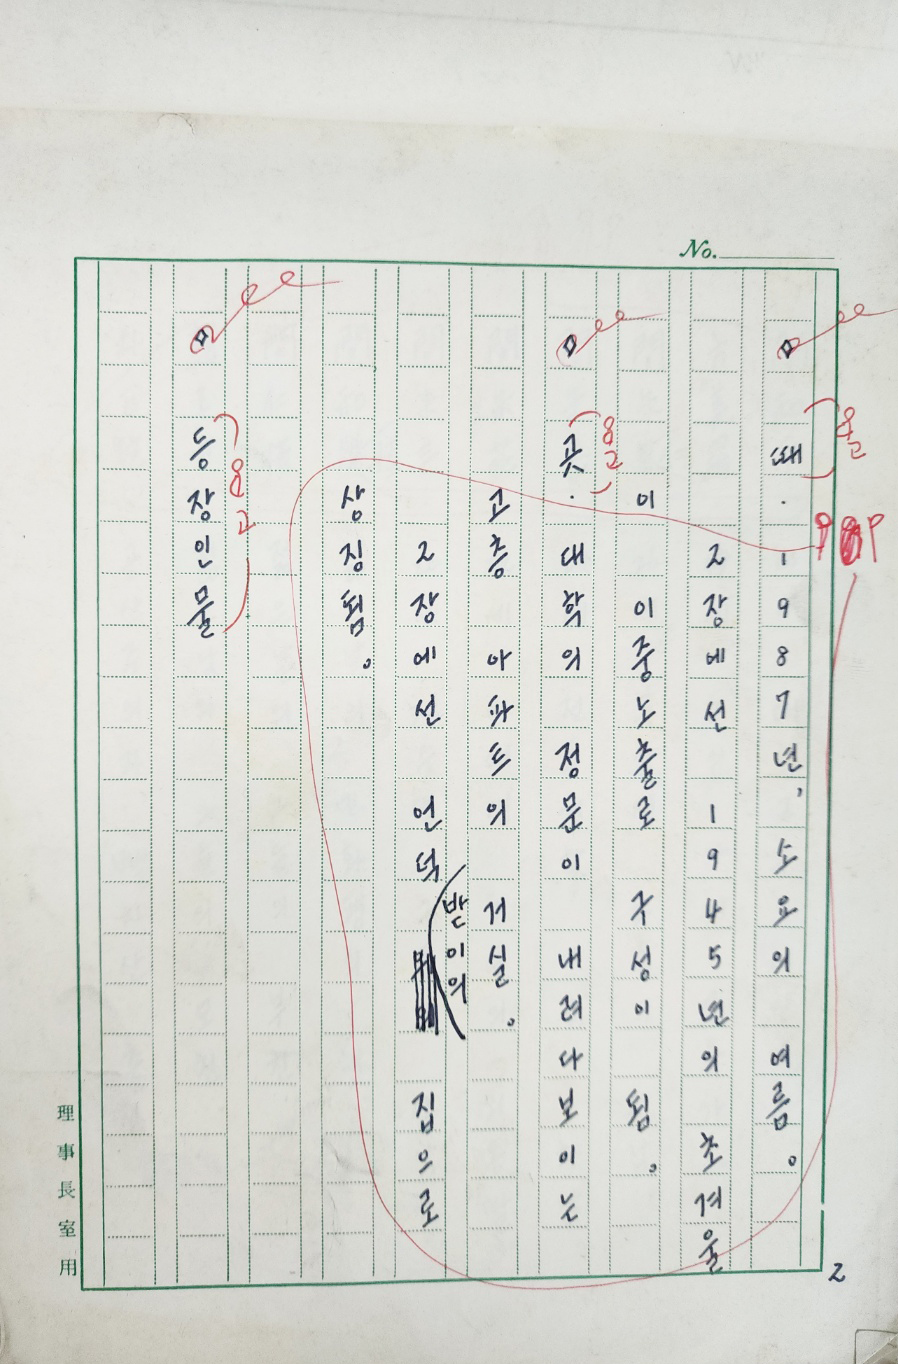 No.
◇ 때. 1987년, 소요의 여름。
2장에선 1945년의 초겨울
이 이중노출로 구성이 됨。
◇ 곳. 대학의 정문이 내려다보이는
고층 아파트의 거실。
2장에선 언덕받이의 집으로
상징됨。
◇ 등장인물
理事長室用
2